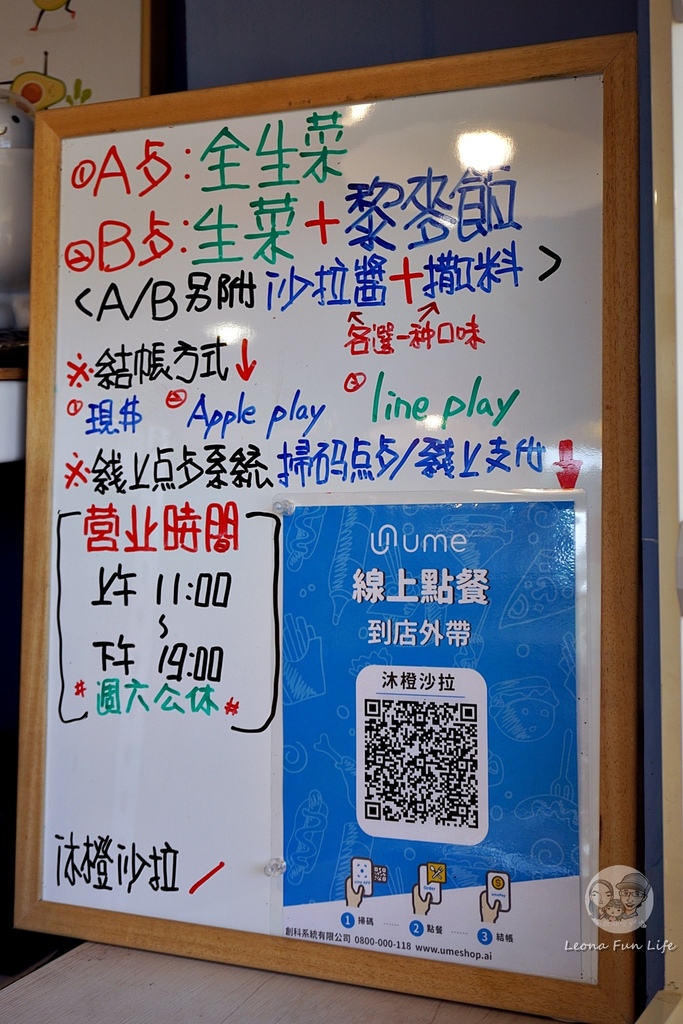 ①A歺:全生菜
②B歺:生菜+藜麥飯
<A/B另附沙拉醬+撒料>
各選一种口味
※結帳方式↓
①現金 ②Apple play ③line play
※綫上点歺系統 掃码点歺/綫上支付↓
营业時間
上午 11:00
~
下午 19:00
*週六公休*
沐橙沙拉
ume
線上點餐
到店外帶
沐橙沙拉
1 掃碼 2 點餐 3 結帳
創科系統有限公司 0800-000-118 www.umeshop.ai
Leona Fun Life